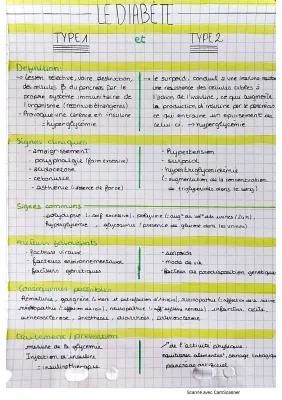 LE DIABÈTE
TYPE 1 et TYPE 2
Définition:
→ Lésion sélective, voire destruction,
des cellules β du pancréas par le
propre système immunitaire de
l'organisme (reconnu étrangères)
• Provoque une carence en insuline
= hyperglycémie
→ le surpoids, conduit à une
une résistance des cellules cibles à
l'action de l'insuline, ce qui augmente
la production d'insuline par le pancréas
ce qui entraine un épuisement de
celui ci → hyperglycémie
Signes cliniques:
- amaigrissement
- polyphagie (faim excessive)
- acidocétose
- cétonurie
- asthénie (absence de force)
- Hypertension
- surpoids
- hypertriglycéridémie
(augmentation de la concentration
de triglycérides dans le sang)
Signes communs
polydipsie (soif excessive), polyurie (aug° du vol° des urines / 24h),
hyperglycémie, glycosurie (présence du glucose dans les urines)
Facteurs favorisants
- facteurs viraux
- facteurs environnementaux
- facteurs génétiques
- surpoids
- mode de vie
- facteurs de prédisposition génétiques
Conséquences possibles
gangrène
infarctus
athérosclérose
Traitement / prévention
mesure de la glycémie
Injection d'insuline
= insulinothérapie
de l'activité physique
équilibre alimentaire
pancréas artificiel
Scanné avec CamScanner